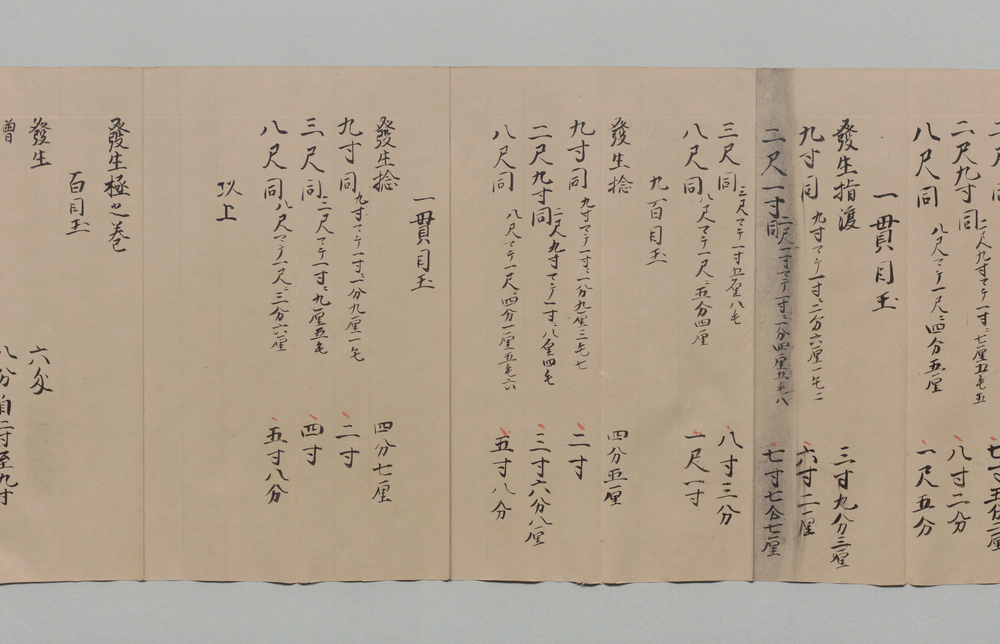 二尺九寸同 二尺九寸マテ一寸ニ七厘五毛五 八寸二分
八尺同 八尺マテ一尺ニ四分五厘 一尺五分
一貫目玉
發生指渡 三寸九分三厘
九寸同 九寸マテ一寸ニ二分六厘一毛二 六寸二厘
二尺一寸同 二尺一寸マテ一寸ニ一分四厘五毛八 七寸七分七厘
三尺同 三尺マテ一寸五厘八毛 八寸三分
八尺同 八尺マテ一尺ニ五分四厘 一尺一寸
九百目玉
發生捻 四分五厘
九寸同 九寸マテ一寸ニ一分九厘三毛七 二寸
二尺九寸同 二尺九寸マテ一寸ニ八厘四毛 三寸六分八厘
八尺同 八尺マテ一尺ニ四分一厘五毛六 五寸八分
一貫目玉
發生捻 四分七厘
九寸同 九寸マテ一寸ニ一分九厘一毛 二寸
三尺同 三尺マテ一寸ニ九厘五毛 四寸
八尺同 八尺マテ一尺ニ三分六厘 五寸八分
以上
發生極之巻
百目玉
發生 六分
增 八分自二寸至九寸